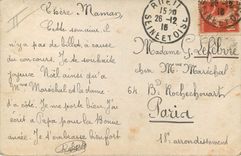 Chère Maman
Cette semaine il
n'y a pas de billet, à cause
du concours. Je te souhaite
joyeux Noël ainsi qu'à
Mme Maréchal et la dame
d'à côté. Je me porte bien. J'ai
écrit à Papa pour la Bonne
année. Je t'embrasse bien fort
RUEIL
15 20
26-12
16
SEINE ET OISE
Madame G. Lefebvre
chez Mme Maréchal
64 B. Rochechouart
Paris
18e arrondissement